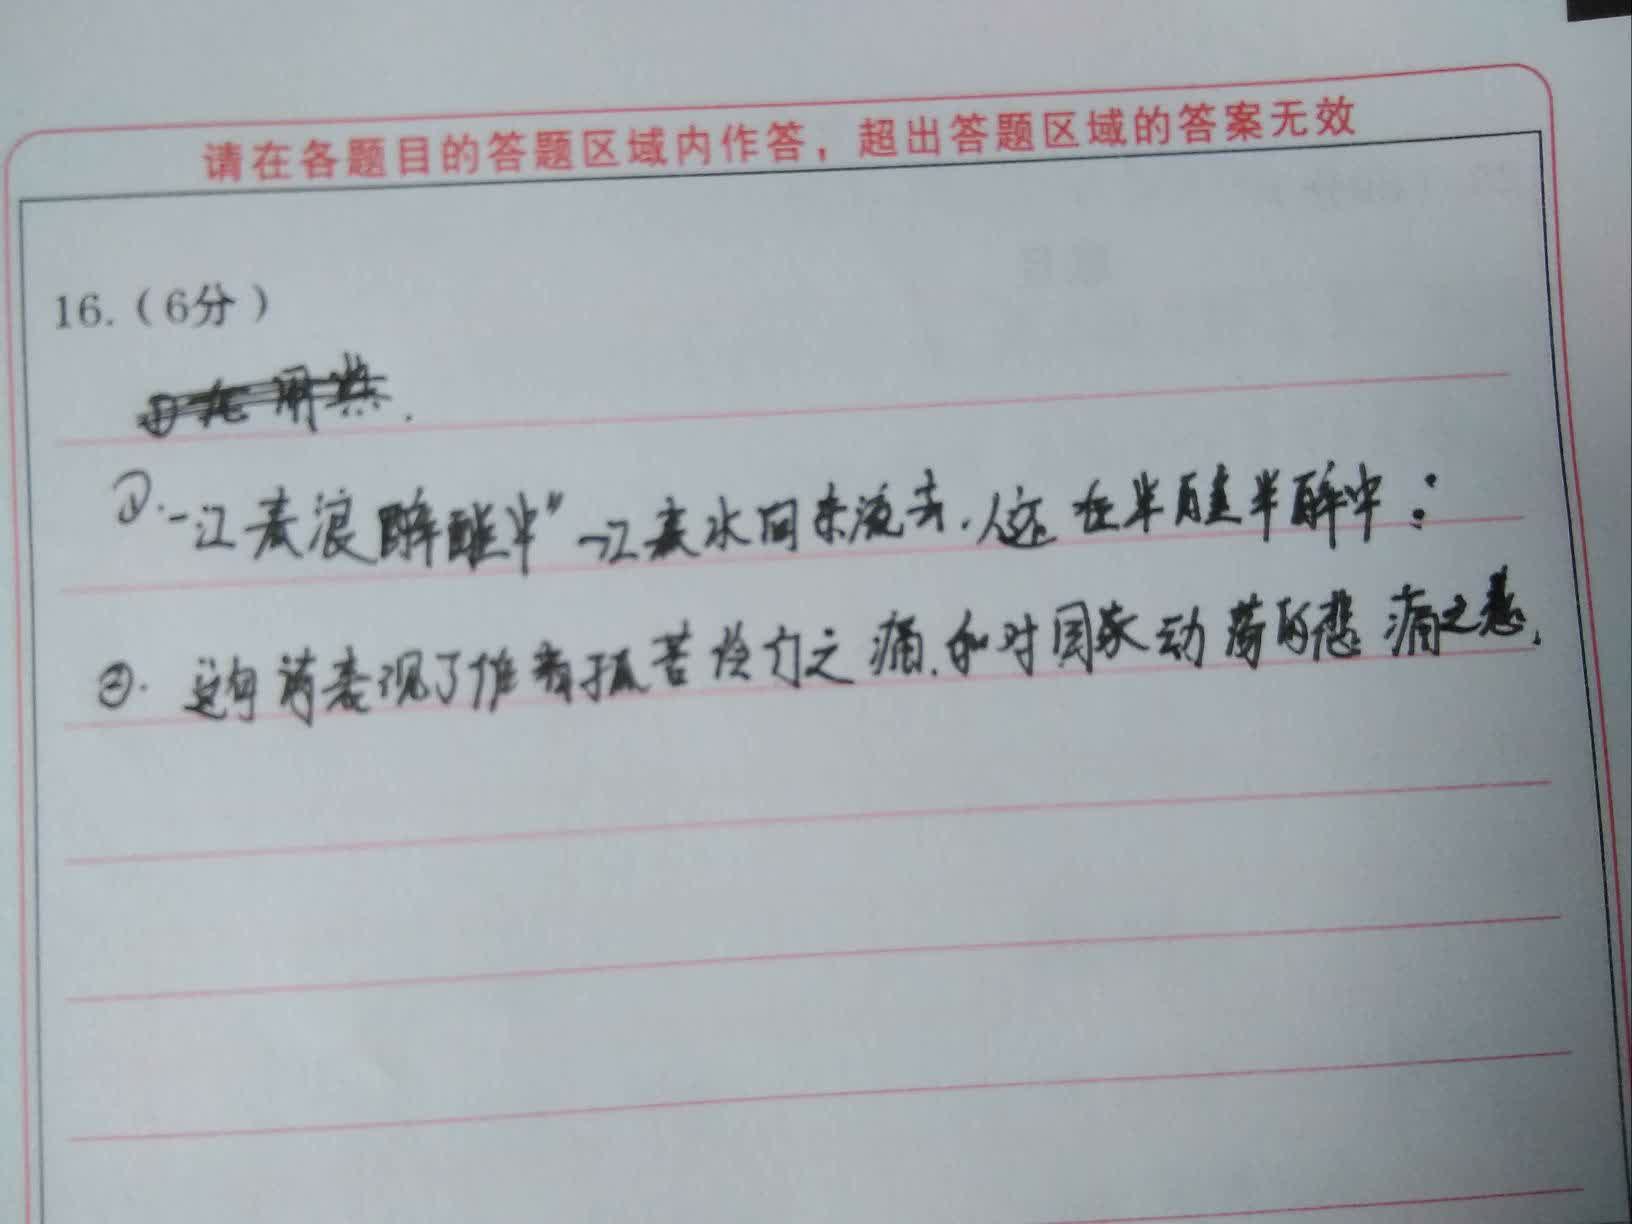 请在各题目的答题区域内作答，超出答题区域的答案无效
16.（6分）
①.一江春浪醉醒中"一江春水向东流去.人还在半醒半醉中：
②. 这句诗表现了作者孤苦伶仃之痛.和对国家动荡的悲痛之愁.